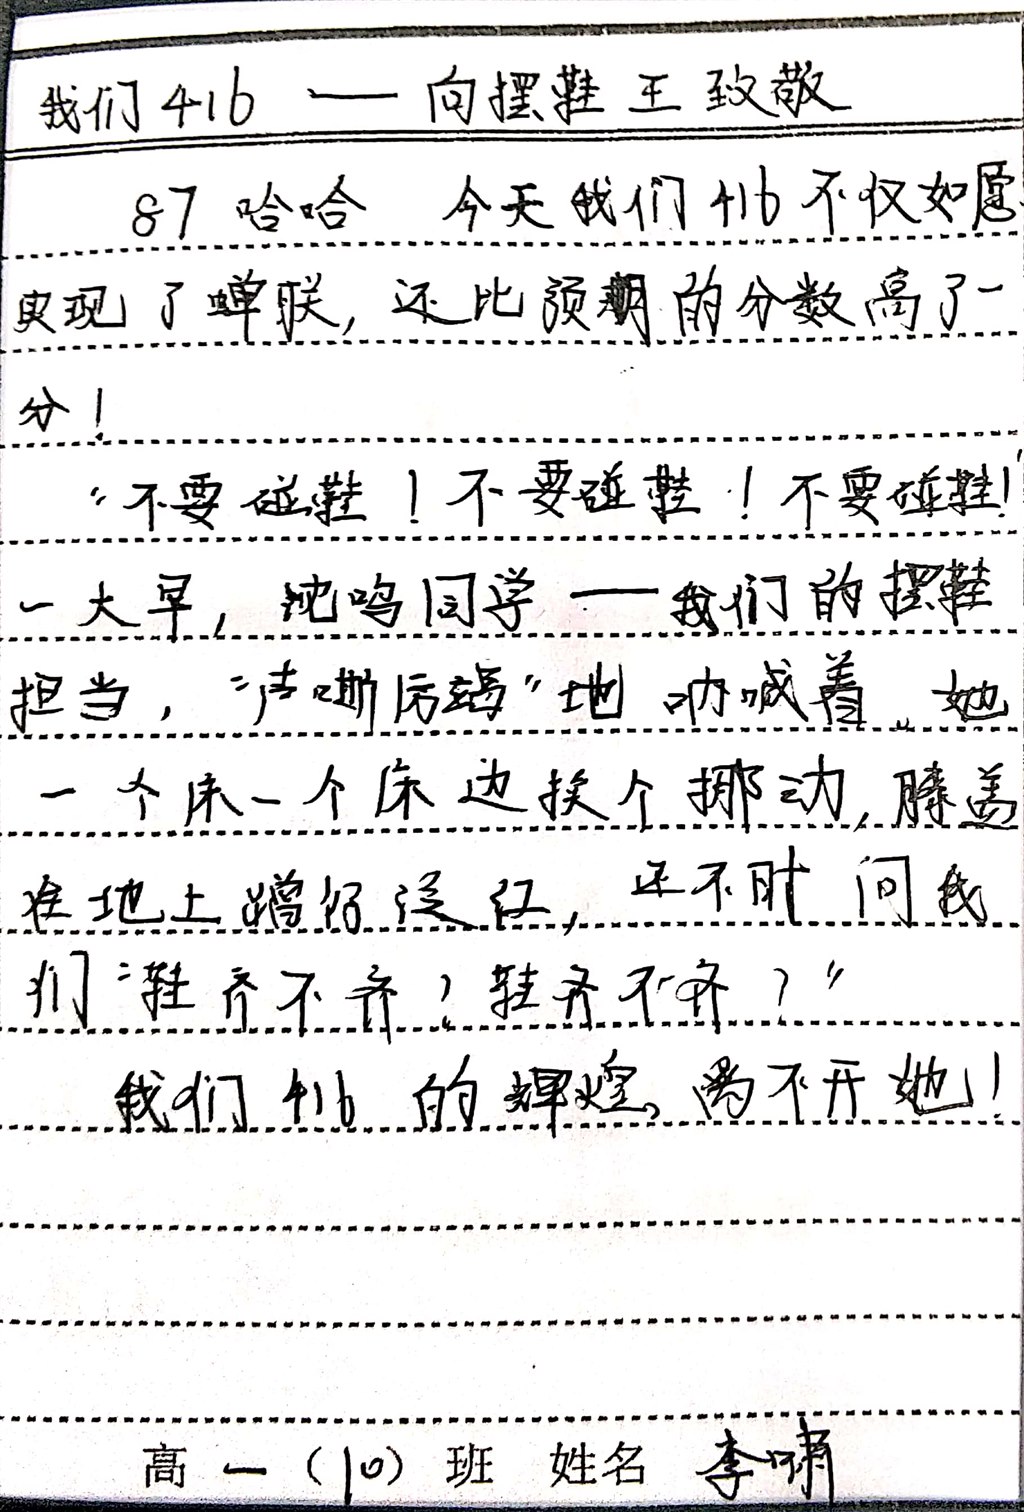 我们416 —— 向摆鞋王致敬
87 哈哈 今天我们416不仅如愿
实现了蝉联，还比预期的分数高了一
分！
“不要碰鞋！不要碰鞋！不要碰鞋！”
一大早，沈鸣同学——我们的摆鞋
担当，“声嘶厉竭”地呐喊着。她
一个床一个床边挨个挪动，膝盖
在地上蹭得泛红，还不时问我
们“鞋齐不齐？鞋齐不齐？”
我们416的辉煌，离不开她！
高一（10）班 姓名 李啸